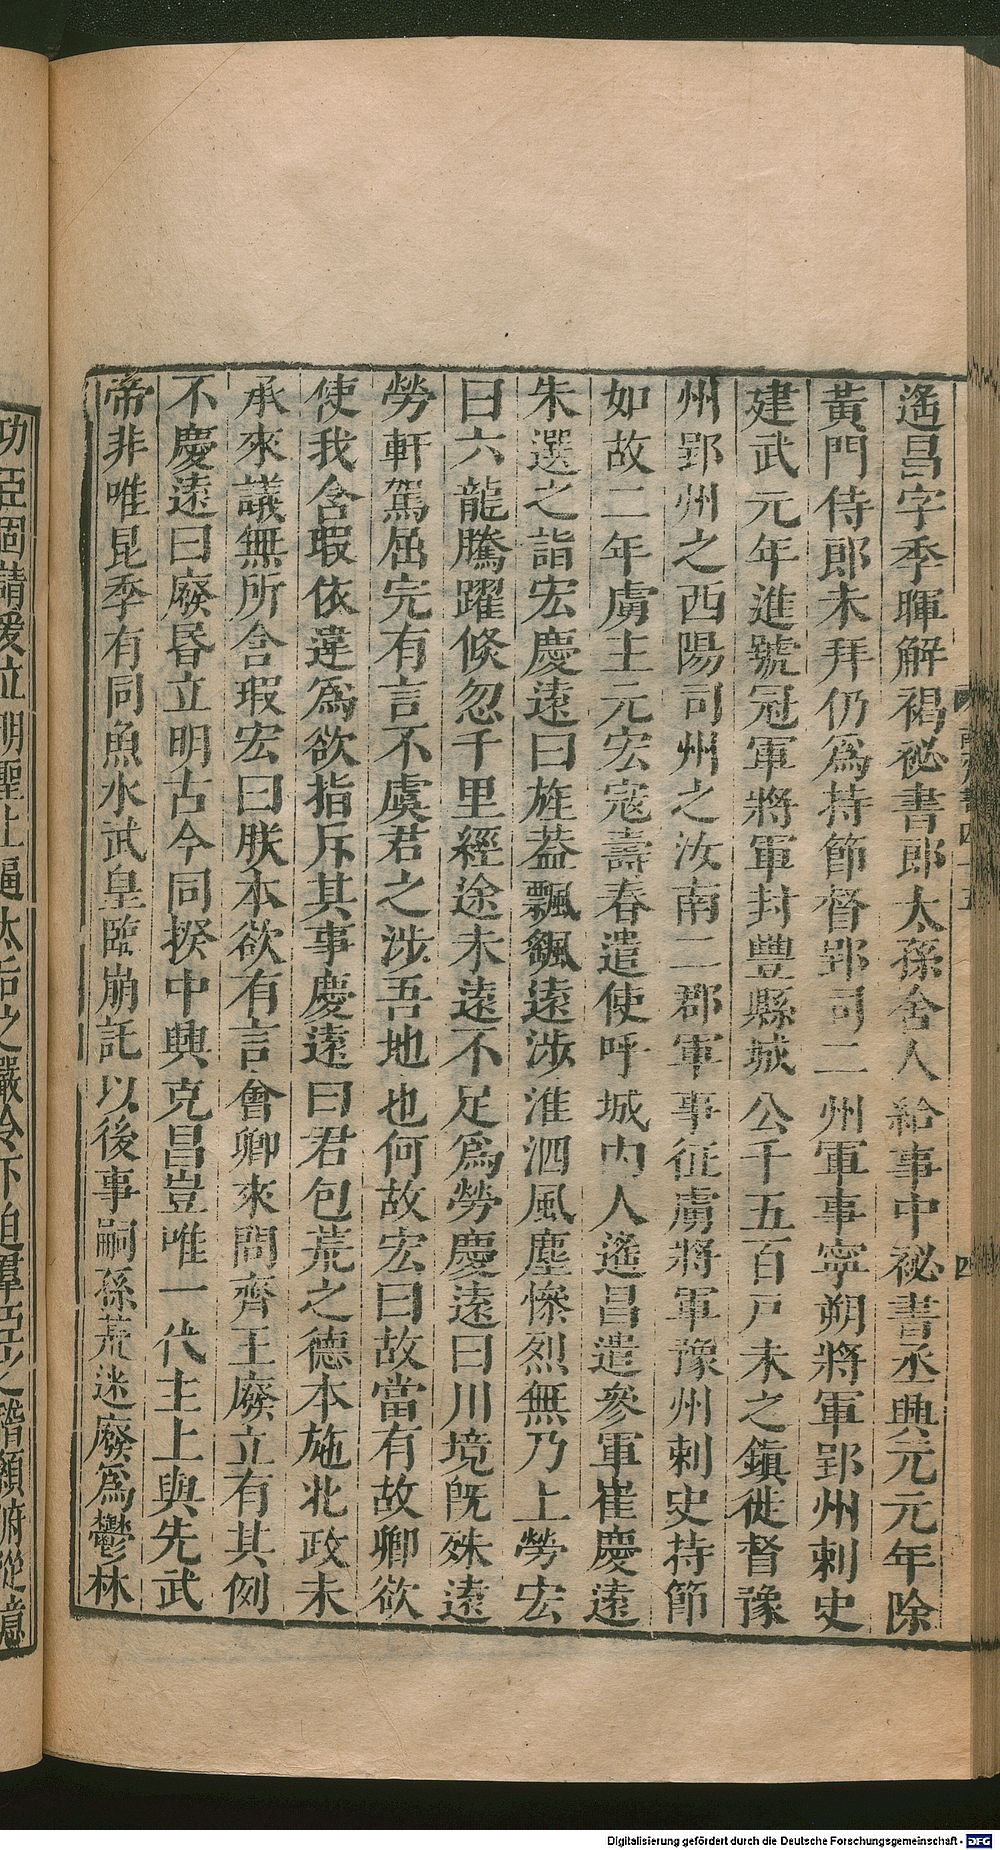 遙昌字季暉解褐祕書郎太孫舍人給事中祕書丞興元元年除
黃門侍郎未拜仍爲持節督郢司二州軍事寧朔將軍郢州刺史
建武元年進號冠軍將軍封豐縣城公千五百戸未之鎭徙督豫
州郢州之西陽司州之汝南二郡軍事征虜將軍豫州刺史持節
如故二年虜主元宏寇壽春遣使呼城内人遙昌遣參軍崔慶遠
朱選之詣宏慶遠曰旌葢飄颻遠涉淮泗風塵慘烈無乃上勞宏
曰六龍騰躍倐忽千里經途未遠不足爲勞慶遠曰川境旣殊遠
勞軒駕屈完有言不虞君之涉吾地也何故宏曰故當有故卿欲
使我含瑕依違爲欲指斥其事慶遠曰君包荒之德本施北政未
承來議無所含瑕宏曰朕本欲有言會卿來問齊王廢立有其例
不慶遠曰廢昏立明古今同揆中興克昌豈唯一代主上與先武
帝非唯昆季有同魚水武皇臨崩託以後事嗣孫荒迷廢爲鬱林
功臣固請爰立明聖上逼太后之嚴令下迫羣臣之
俯從億
四
Digitalisierung gefördert durch die Deutsche Forschungsgemeinschaft - DFG